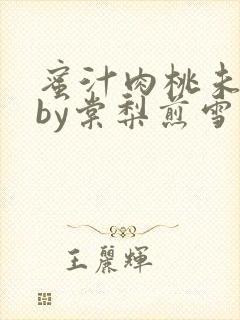 蜜汁肉桃未
by棠梨煎雪
王麗輝